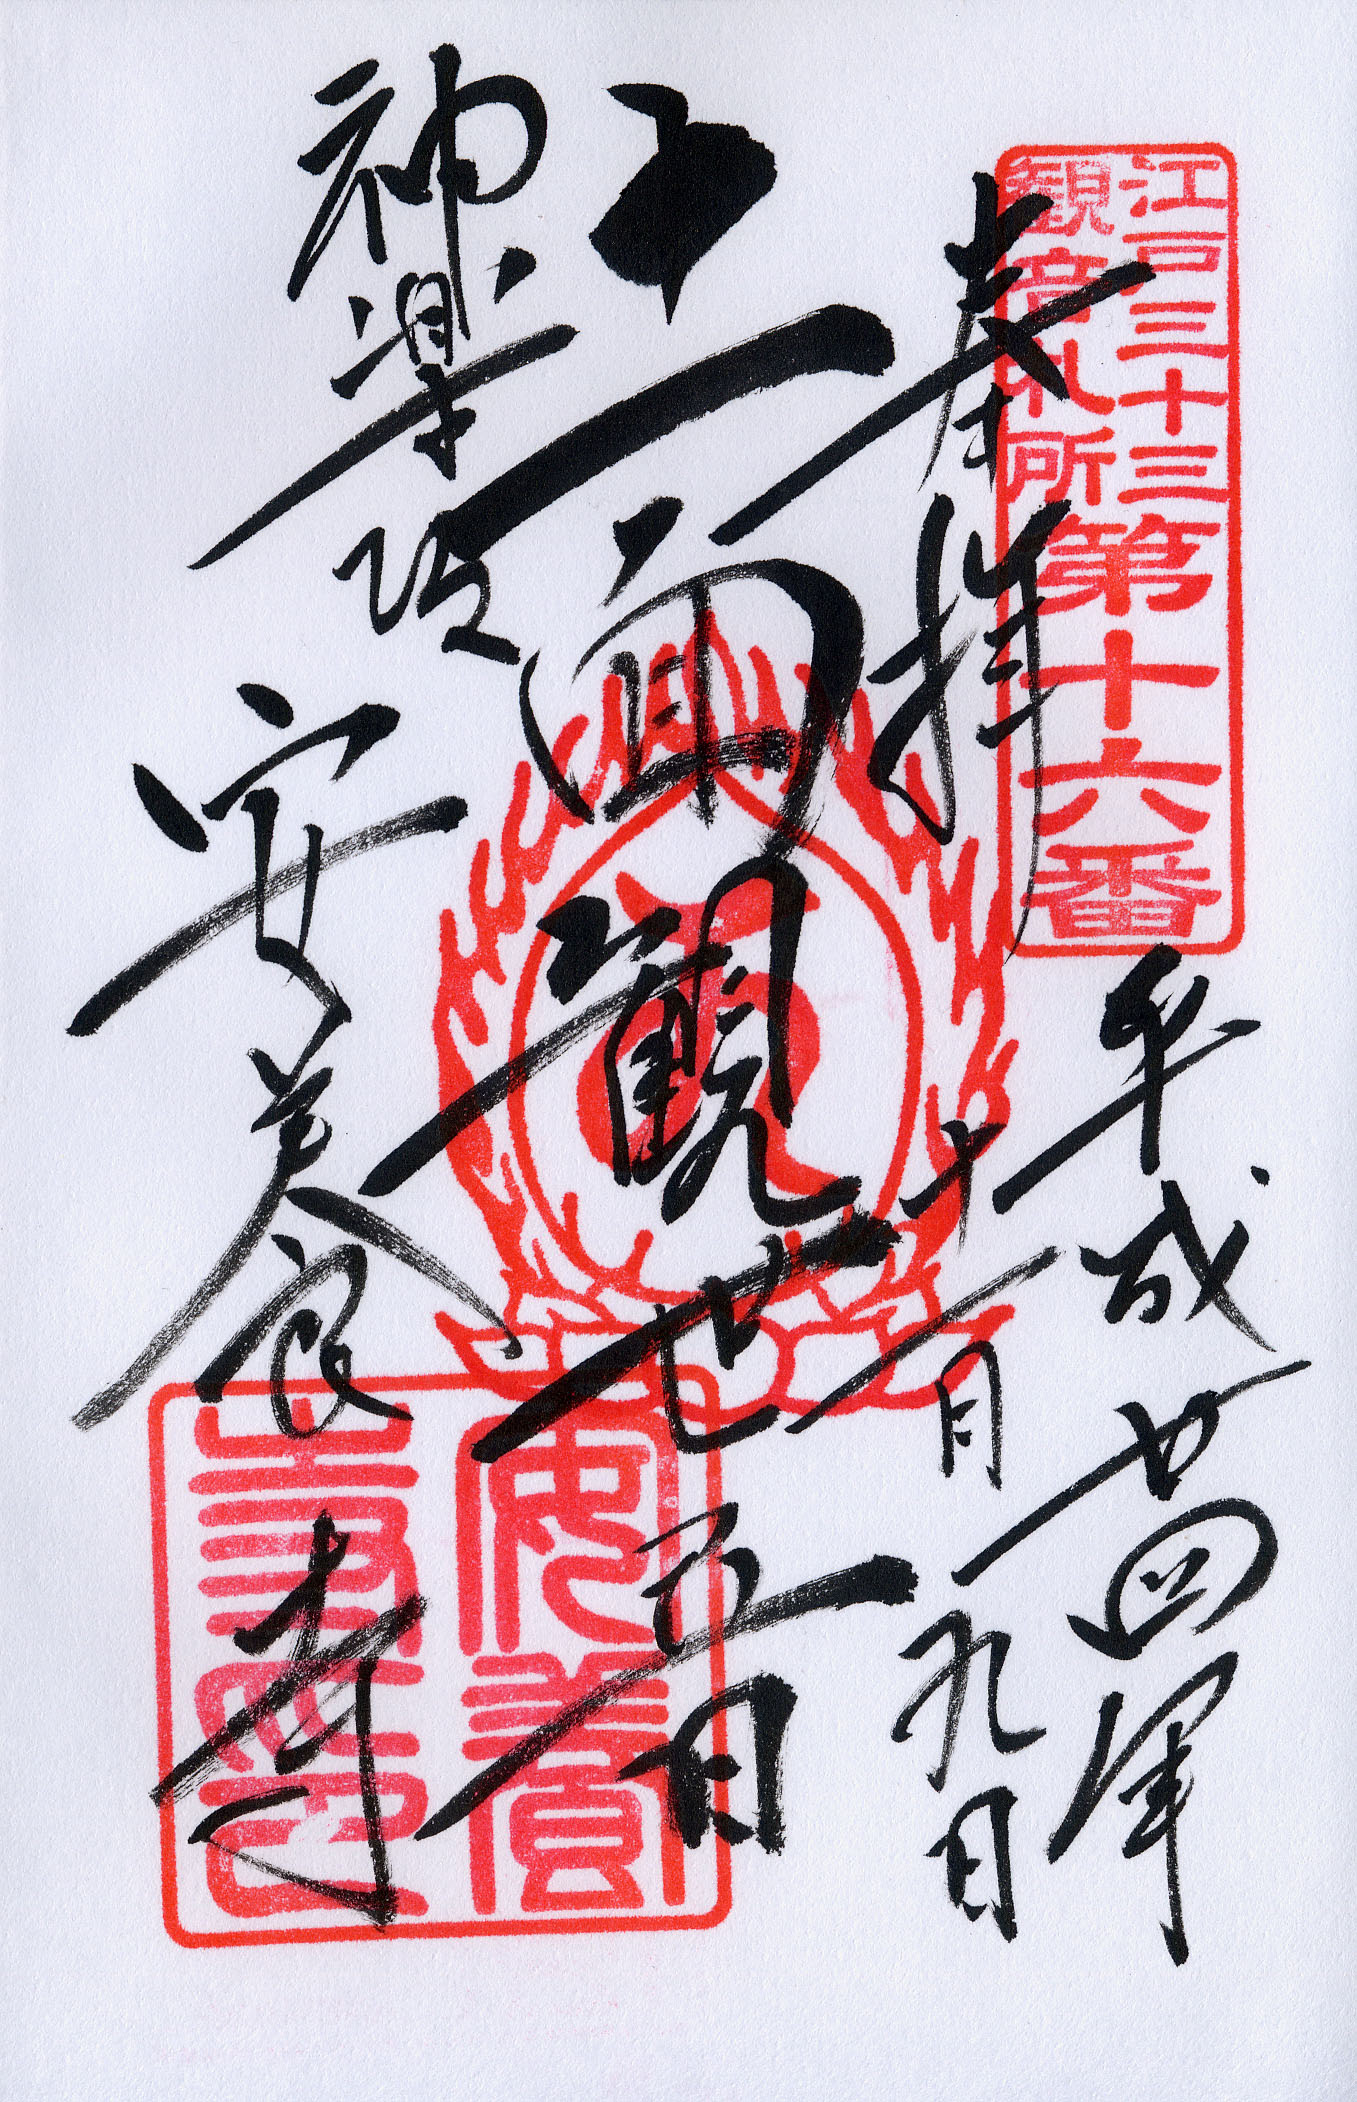 江戸三十三
観音札所
第十六番
奉拝
平成廿四年
十一月九日
十一面観世音
神楽坂
安養寺
安養
寺印